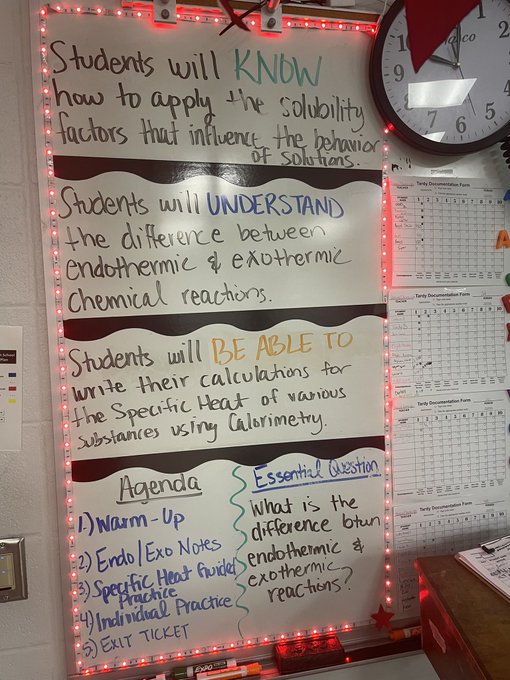 Students will KNOW
how to apply the solubility
factors that influence the behavior
of solutions.
Students will UNDERSTAND
the difference between
endothermic & exothermic
chemical reactions.
Students will BE ABLE TO
write their calculations for
the Specific Heat of various
substances using Calorimetry.
Agenda
1.) Warm-Up
2) Endo/Exo Notes
3) Specific Heat Guided
Practice
4) Individual Practice
5) EXIT TICKET
Essential Question
What is the
difference btwn
endothermic &
exothermic
reactions?
EXPO
10
9
8
7
6
5
4
3
2
Tardy Documentation Form
Tardy Documentation Form
Tardy Documentation Form
Tardy Documentation Form